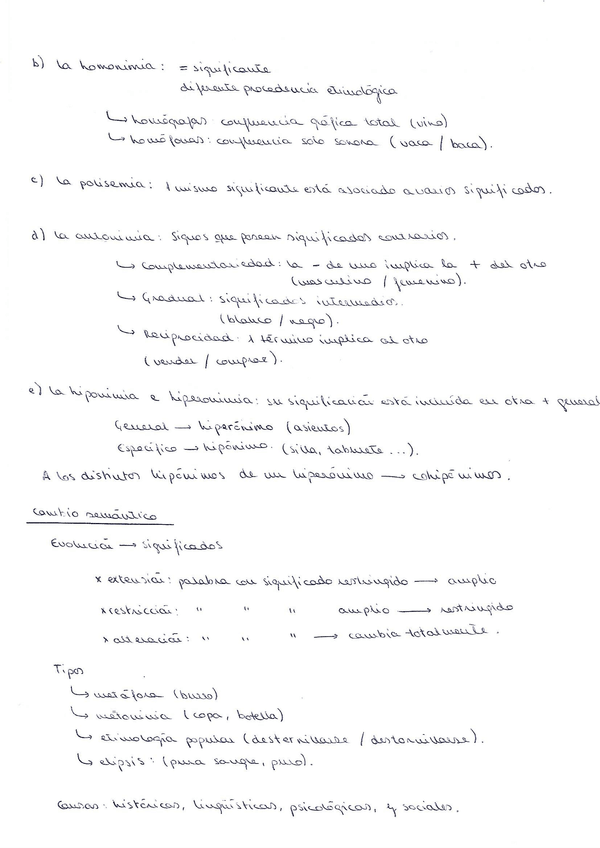 b) la homonimia: = significante
diferente procedencia etimológica
↳ homógrafas: confluencia gráfica total (vino)
↳ homófonas: confluencia solo sonora (vaca / baca).
c) la polisemia: 1 mismo significante está asociado a varios significados.
d) la antonimia: signos que poseen significados contrarios.
↳ Complementariedad: la - de uno implica la + del otro
(masculino / femenino).
↳ Gradual: significados intermedios.
(blanco / negro).
↳ Reciprocidad: 1 término implica al otro
(vender / comprar).
e) la hiponimia e hiperonimia: su significación está incluida en otra + general
General → hiperónimo (asientos)
Específico → hipónimo. (silla, taburete ...).
A los distintos hipónimos de un hiperónimo → cohipónimos.
Cambio semántico
Evolución → significados
* extensión: palabra con significado restringido → amplio
* restricción: " " " amplio → restringido
* alteración: " " " → cambia totalmente.
Tipos
↳ metáfora (burro)
↳ metonimia (copa, botella)
↳ etimología popular (desternillarse / destornillarse).
↳ elipsis: (pura sangre, puro).
Causas: históricas, lingüísticas, psicológicas, y sociales.